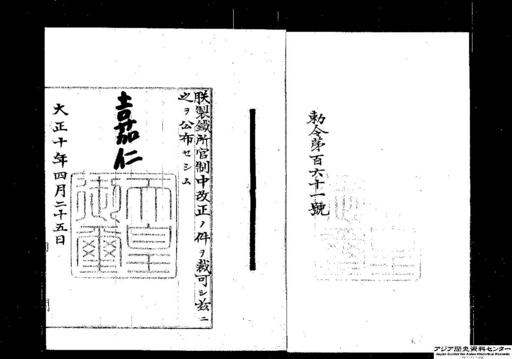 勅令第百六十一號
朕製鐵所官制中改正ノ件ヲ裁可シ茲ニ
之ヲ公布セシム
嘉仁
天皇御璽
大正十年四月二十五日
アジア歴史資料センター
Japan Center for Asian Historical Records